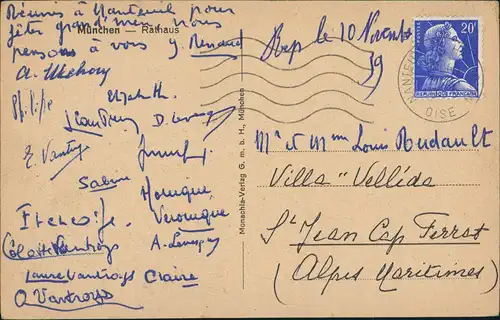 Réunis à Nanteuil pour
fêter grand'mère nous
pensons à vous J Renaud
München — Rathaus
Rep le 10 Novembre
59
20F
RÉPUBLIQUE FRANÇAISE
NANTEUIL
OISE
Philippe
Elizabeth
D.
E. Vantroys
Sabine
Monique
Véronique
Françoise
Colette Vantroys
A.
Laure Vantroys Claire
O Vantroys
Monachia-Verlag G. m. b. H., München
Mr et Mme Louis Rudault
Villa "Vellida
St Jean Cap Ferrat
(Alpes Maritimes)